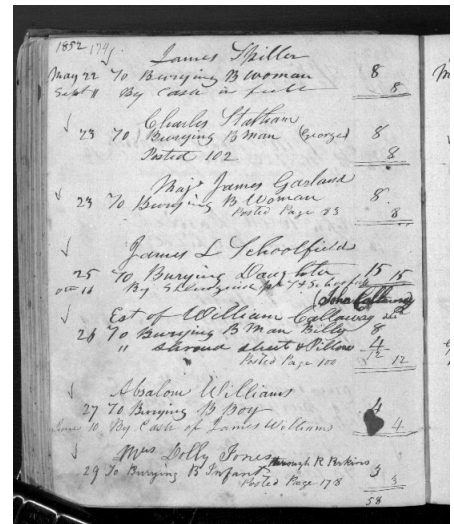 1852 174
James Spiller
May 22 To Burying B Woman 8
Sept 11 By Cash in full 8
Charles Statham
23 To Burying B Man (George) 8
Posted 102 8
Maj James Garland
23 To Burying B Woman 8
Posted Page 53 8
James L Schoolfield
25 To Burying Daughter 15 15
Oct 16 By
(John Callaway
Est of William Callaway
26 To Burying B Man Billy 8
" Shroud sheet & Pillow 4
12
Posted Page 100 12
Absalom Williams
27 To Burying B Boy 4
June 10 By Cash of James Williams 4
Mrs Dolly Jones through R Perkins
29 To Burying B Infant 3
Posted Page 178 3
58